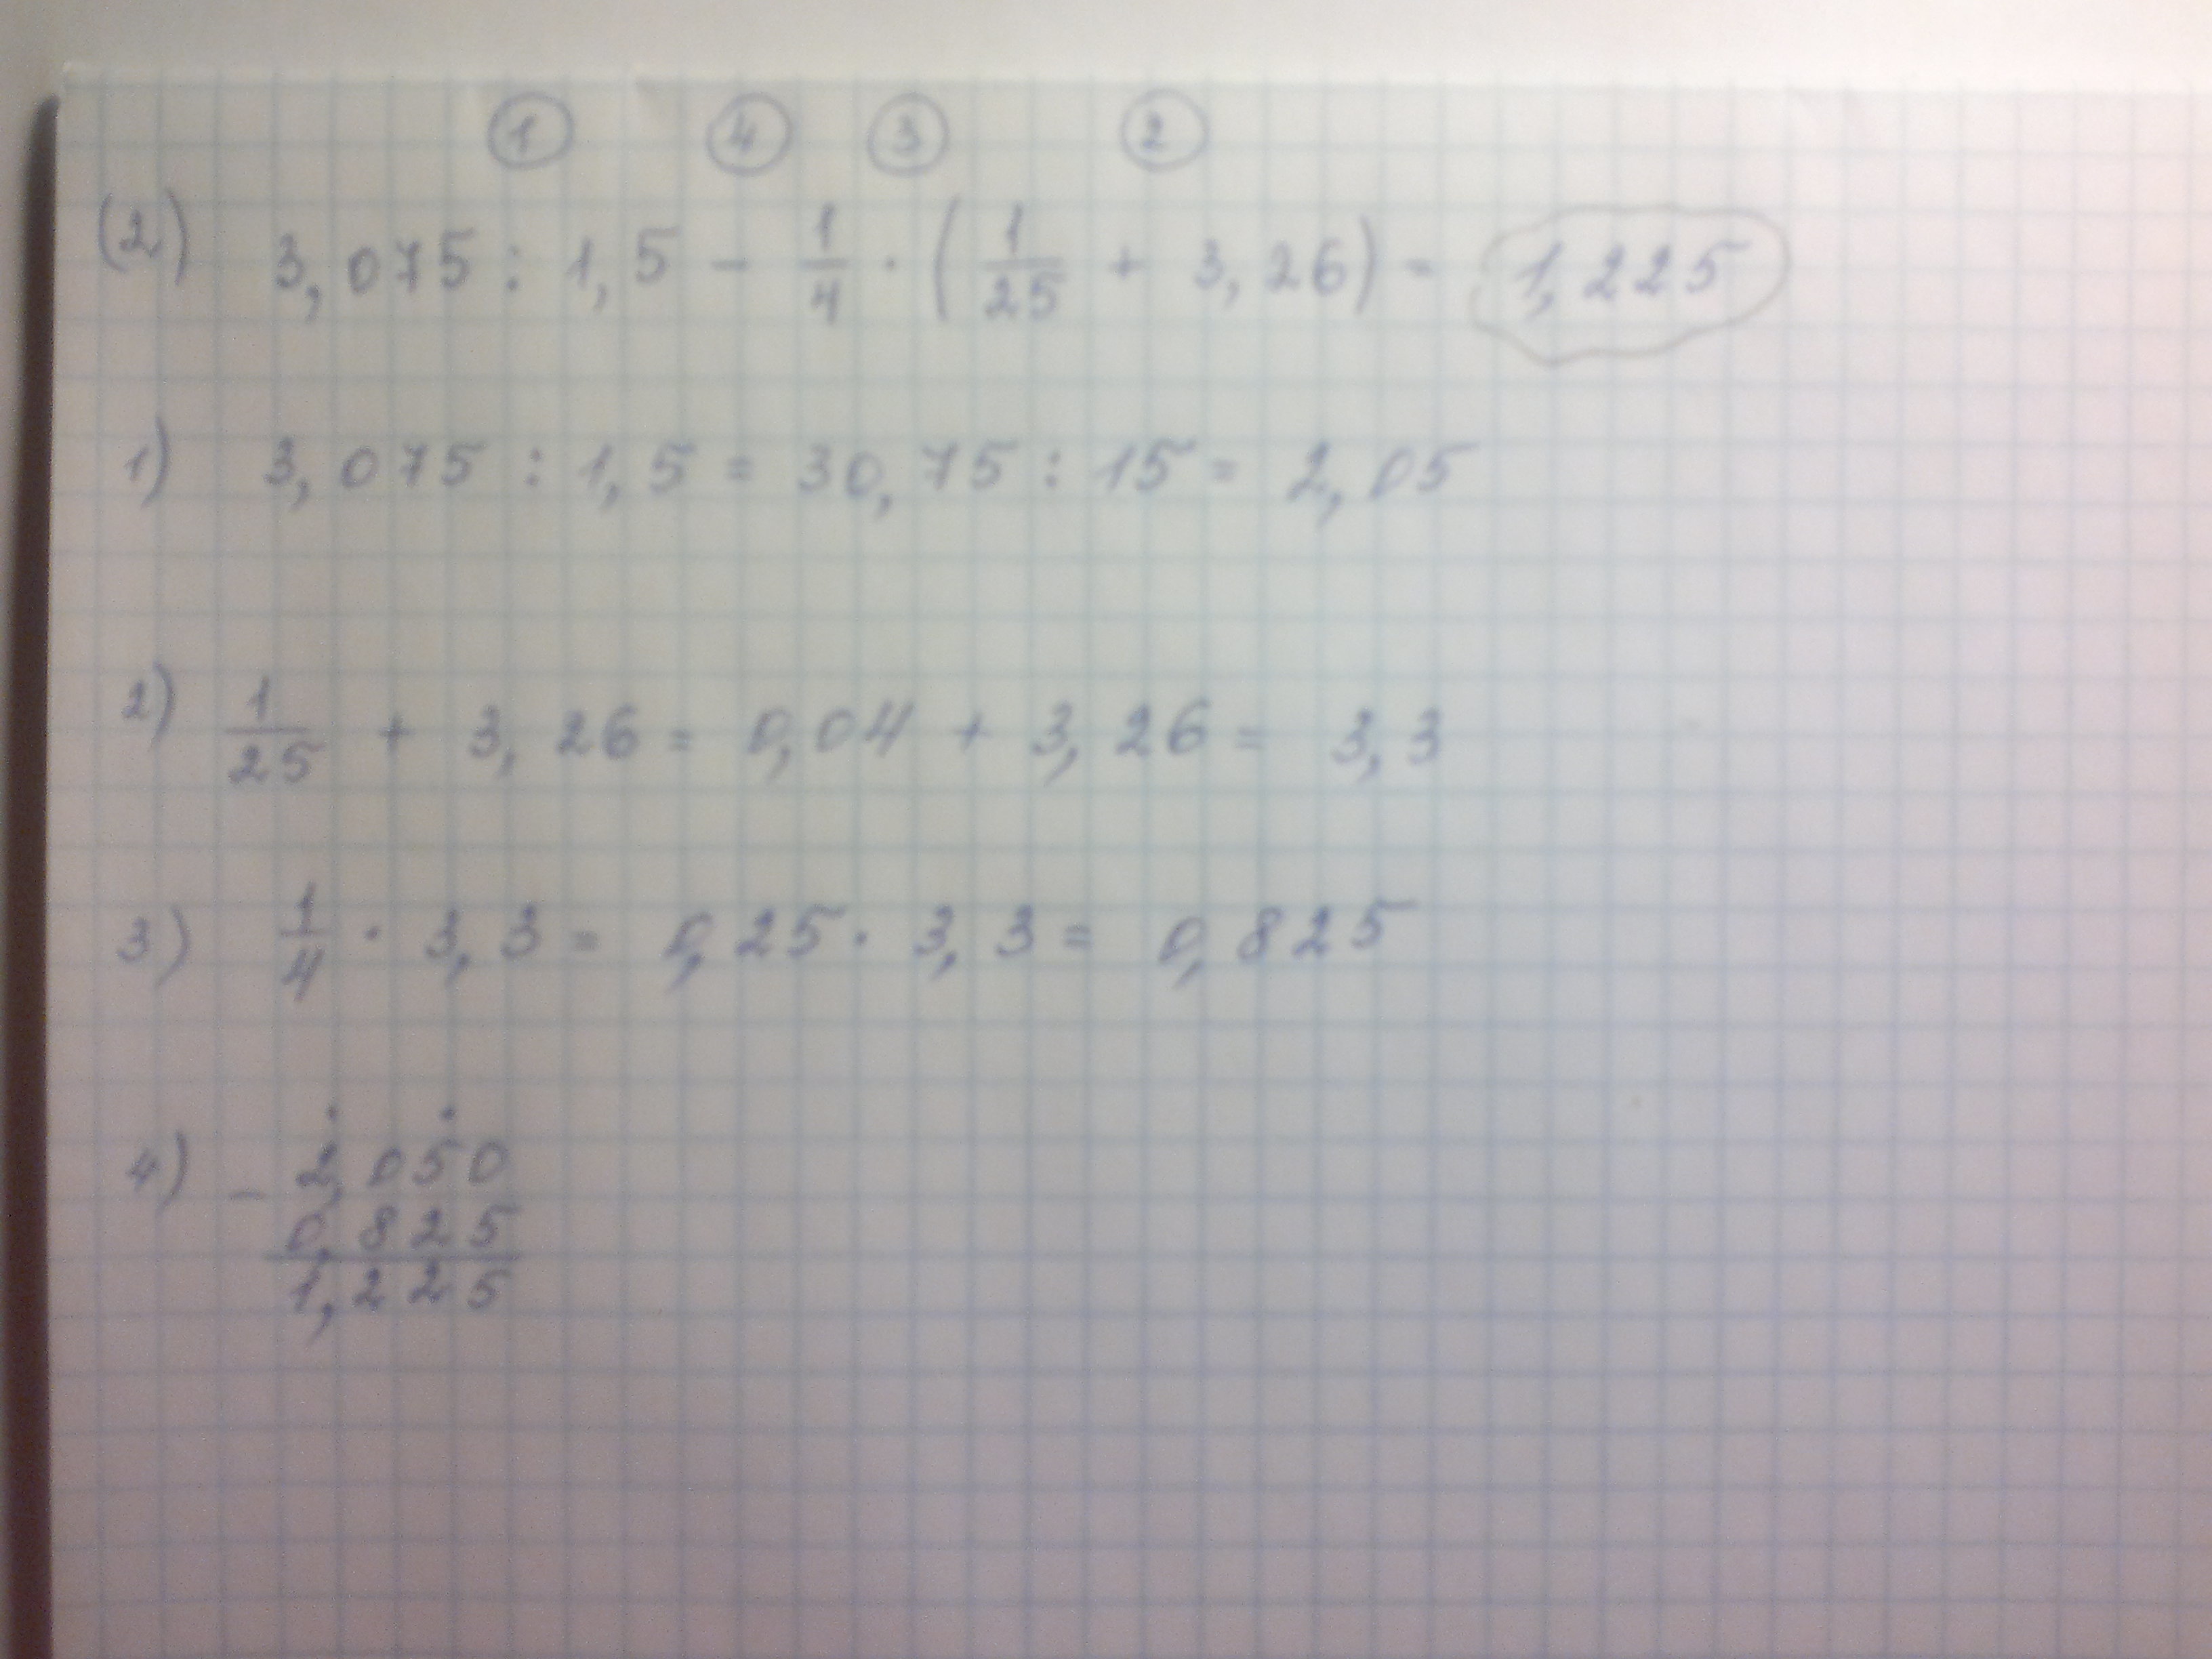 ① ④ ③ ②
(2) 3,075 : 1,5 - 1/4 · (1/25 + 3,26) = 1,225
1) 3,075 : 1,5 = 30,75 : 15 = 2,05
2) 1/25 + 3,26 = 0,04 + 3,26 = 3,3
3) 1/4 · 3,3 = 0,25 · 3,3 = 0,825
4) - 2,050
0,825
1,225